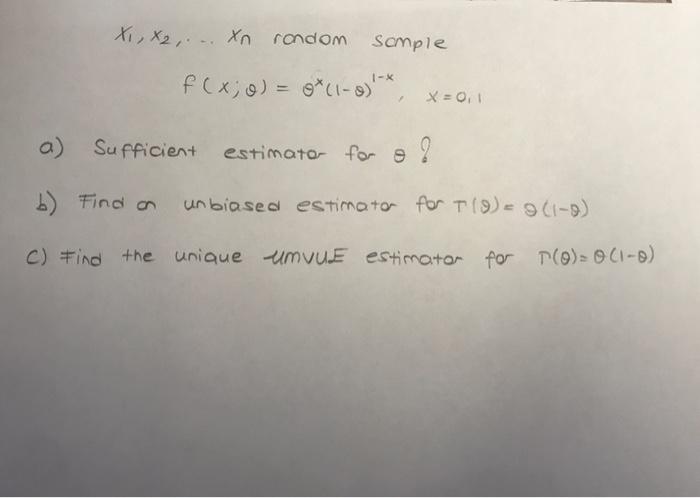 X₁, X₂, ... Xn random sample
f(x;θ) = θˣ(1-θ)¹⁻ˣ, x=0,1
a) Sufficient estimator for θ?
b) Find an unbiased estimator for T(θ) = θ(1-θ)
c) Find the unique UMVUE estimator for T(θ) = θ(1-θ)